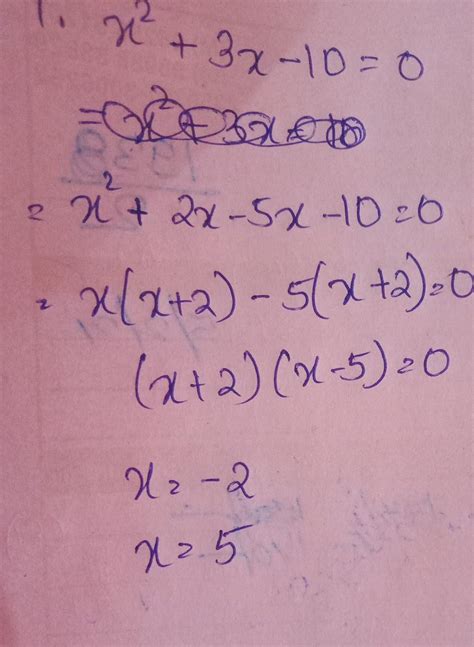 1. x² + 3x - 10 = 0
= x² + 3x - 10
= x² + 2x - 5x - 10 = 0
= x(x+2) - 5(x+2) = 0
(x+2)(x-5) = 0
x = -2
x = 5